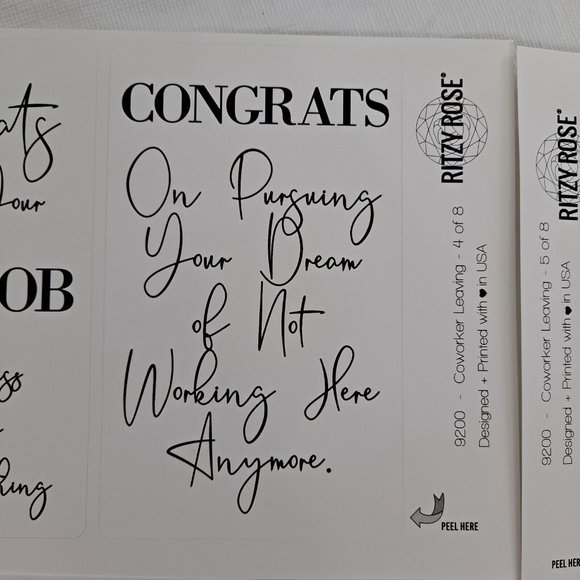 CONGRATS
On Pursuing
Your Dream
of Not
Working Here
Anymore.
RITZY ROSE®
9200 - Coworker Leaving - 4 of 8
Designed + Printed with ♥ in USA
PEEL HERE
RITZY ROSE®
9200 - Coworker Leaving - 5 of 8
Designed + Printed with ♥ in USA
PEEL HERE